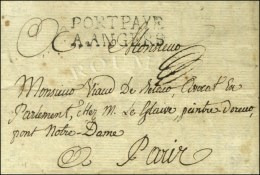 PORT PAYE
A ANGERS
Monsieur
Monsieur Viaud de Avocat En
Parlement, chez M. Le peintre doreur,
pont Notre-Dame
A Paris